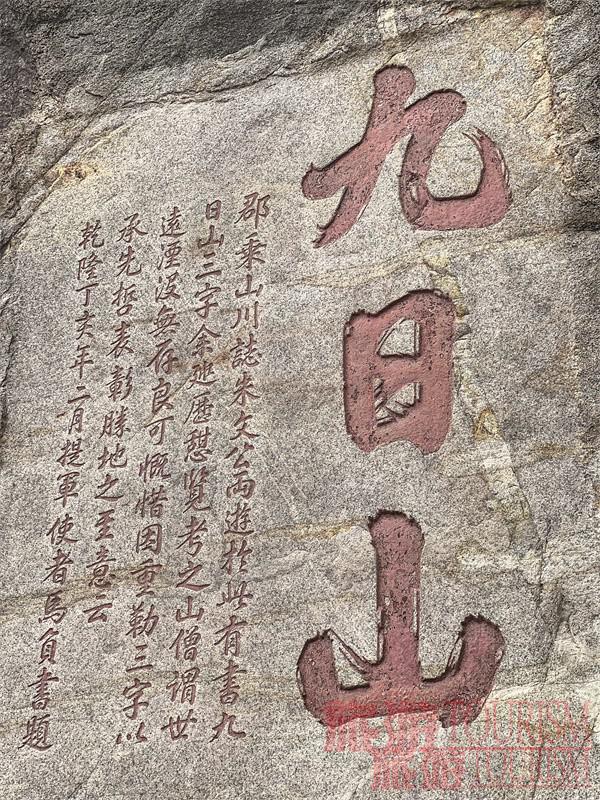 九日山
郡乘山川誌朱文公两遊於此有書九
日山三字余巡歷憇覽考之山僧謂世
遠湮沒無存良可慨惜因重勒三字以
承先哲表彰勝地之至意云
乾隆丁亥年二月提軍使者馬負書題
旅游TOURISM
旅游TOURISM